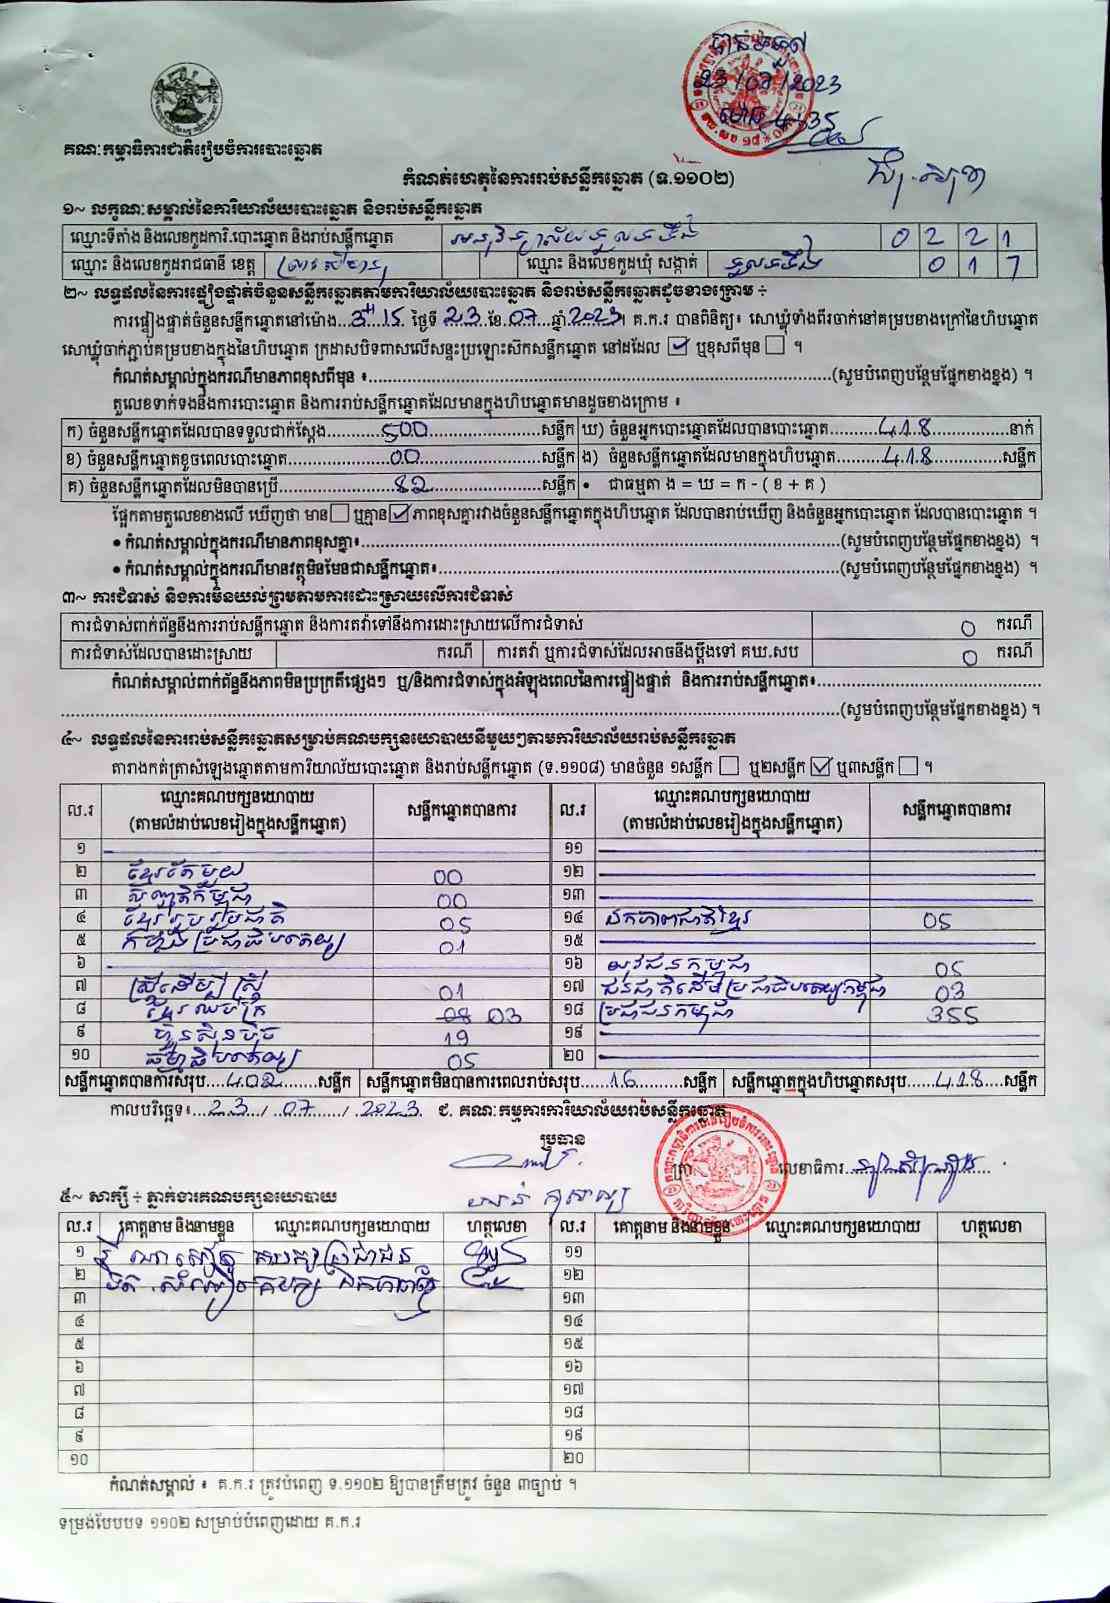 បានទទួល
23/07/2023
ម៉ោង 4:35
គណៈកម្មាធិការជាតិរៀបចំការបោះឆ្នោត
កំណត់ហេតុនៃការរាប់សន្លឹកឆ្នោត (ទ.១១០២)
១~ លក្ខណៈសម្គាល់នៃការិយាល័យបោះឆ្នោត និងរាប់សន្លឹកឆ្នោត
ឈ្មោះទីតាំង និងលេខកូដការិ.បោះឆ្នោត និងរាប់សន្លឹកឆ្នោត អនុវិទ្យាល័យទួលទទឹង 0 2 2 1
ឈ្មោះ និងលេខកូដរាជធានី ខេត្ត ឈ្មោះ និងលេខកូដឃុំ សង្កាត់ ទួលទទឹង 0 1 7
២~ លទ្ធផលនៃការផ្ទៀងផ្ទាត់ចំនួនសន្លឹកឆ្នោតតាមការិយាល័យបោះឆ្នោត និងរាប់សន្លឹកឆ្នោតដូចខាងក្រោម ÷
ការផ្ទៀងផ្ទាត់ចំនួនសន្លឹកឆ្នោតនៅម៉ោង...3H15 ថ្ងៃទី 23 ខែ 07 ឆ្នាំ 2023។ គ.ក.រ បានពិនិត្យ៖ សោឃ្លុំទាំងពីរចាក់នៅគម្របខាងក្រៅនៃហិបឆ្នោត
សោឃ្លុំចាក់ភ្ជាប់គម្របខាងក្នុងនៃហិបឆ្នោត ក្រដាសបិទពាសលើសន្ទះប្រឡោះស៊កសន្លឹកឆ្នោត នៅដដែល ☑ ឬខុសពីមុន ☐ ។
កំណត់សម្គាល់ក្នុងករណីមានភាពខុសពីមុន ៖...(សូមបំពេញបន្ថែមផ្នែកខាងខ្នង) ។
តួលេខទាក់ទងនឹងការបោះឆ្នោត និងការរាប់សន្លឹកឆ្នោតដែលមានក្នុងហិបឆ្នោតមានដូចខាងក្រោម ៖
ក) ចំនួនសន្លឹកឆ្នោតដែលបានទទួលជាក់ស្តែង...500...សន្លឹក ឃ) ចំនួនអ្នកបោះឆ្នោតដែលបានបោះឆ្នោត...418...នាក់
ខ) ចំនួនសន្លឹកឆ្នោតខូចពេលបោះឆ្នោត...00...សន្លឹក ង) ចំនួនសន្លឹកឆ្នោតដែលមានក្នុងហិបឆ្នោត...418...សន្លឹក
គ) ចំនួនសន្លឹកឆ្នោតដែលមិនបានប្រើ...82...សន្លឹក • ជាធម្មតា ង = ឃ = ក - ( ខ + គ )
ផ្អែកតាមតួលេខខាងលើ ឃើញថា មាន ☐ ឬគ្មាន ☑ ភាពខុសគ្នារវាងចំនួនសន្លឹកឆ្នោតក្នុងហិបឆ្នោត ដែលបានរាប់ឃើញ និងចំនួនអ្នកបោះឆ្នោត ដែលបានបោះឆ្នោត ។
• កំណត់សម្គាល់ក្នុងករណីមានភាពខុសគ្នា៖...(សូមបំពេញបន្ថែមផ្នែកខាងខ្នង) ។
• កំណត់សម្គាល់ក្នុងករណីមានវត្ថុមិនមែនជាសន្លឹកឆ្នោត៖...(សូមបំពេញបន្ថែមផ្នែកខាងខ្នង) ។
៣~ ការជំទាស់ និងការមិនយល់ព្រមតាមការដោះស្រាយលើការជំទាស់
ការជំទាស់ពាក់ព័ន្ធនឹងការរាប់សន្លឹកឆ្នោត និងការតវ៉ាទៅនឹងការដោះស្រាយលើការជំទាស់ 0 ករណី
ការជំទាស់ដែលបានដោះស្រាយ ករណី ការតវ៉ា ឬការជំទាស់ដែលអាចនឹងប្តឹងទៅ គឃ.សប 0 ករណី
កំណត់សម្គាល់ពាក់ព័ន្ធនឹងភាពមិនប្រក្រតីផ្សេងៗ ឬ/និងការជំទាស់ក្នុងអំឡុងពេលនៃការផ្ទៀងផ្ទាត់ និងការរាប់សន្លឹកឆ្នោត៖...
...(សូមបំពេញបន្ថែមផ្នែកខាងខ្នង) ។
៤~ លទ្ធផលនៃការរាប់សន្លឹកឆ្នោតសម្រាប់គណបក្សនយោបាយនីមួយៗតាមការិយាល័យរាប់សន្លឹកឆ្នោត
តារាងកត់ត្រាសំឡេងឆ្នោតតាមការិយាល័យបោះឆ្នោត និងរាប់សន្លឹកឆ្នោត (ទ.១១០៨) មានចំនួន ១សន្លឹក ☐ ឬ២សន្លឹក ☑ ឬ៣សន្លឹក ☐ ។
ល.រ ឈ្មោះគណបក្សនយោបាយ (តាមលំដាប់លេខរៀងក្នុងសន្លឹកឆ្នោត) សន្លឹកឆ្នោតបានការ ល.រ ឈ្មោះគណបក្សនយោបាយ (តាមលំដាប់លេខរៀងក្នុងសន្លឹកឆ្នោត) សន្លឹកឆ្នោតបានការ
១ ១១
២ ខ្មែរតែមួយ 00 ១២
៣ សញ្ជាតិកម្ពុជា 00 ១៣
៤ ខ្មែររួបរួមជាតិ 05 ១៤ ឯកភាពជាតិខ្មែរ 05
៥ កម្លាំងប្រជាធិបតេយ្យ 01 ១៥
៦ ១៦ យុវជនកម្ពុជា 05
៧ ស្ត្រីដើម្បីស្ត្រី 01 ១៧ ជនជាតិដើមប្រជាធិបតេយ្យកម្ពុជា 03
៨ ខ្មែរឈប់ក្រ 03 ១៨ ប្រជាជនកម្ពុជា 355
៩ ហ្វ៊ុនស៊ិនប៉ិច 19 ១៩
១០ ធម្មាធិបតេយ្យ 05 ២០
សន្លឹកឆ្នោតបានការសរុប...402...សន្លឹក សន្លឹកឆ្នោតមិនបានការពេលរាប់សរុប...16...សន្លឹក សន្លឹកឆ្នោតក្នុងហិបឆ្នោតសរុប...418...សន្លឹក
កាលបរិច្ឆេទ៖...23./.07./.2023 ជ. គណៈកម្មការការិយាល័យរាប់សន្លឹកឆ្នោត
ប្រធាន
ត្រា លេខាធិការ
៥~ សាក្សី ÷ ភ្នាក់ងារគណបក្សនយោបាយ
ល.រ គោត្តនាម និងនាមខ្លួន ឈ្មោះគណបក្សនយោបាយ ហត្ថលេខា ល.រ គោត្តនាម និងនាមខ្លួន ឈ្មោះគណបក្សនយោបាយ ហត្ថលេខា
១ គណបក្សប្រជាជន ១១
២ គបក្ស ឯកភាពជាតិខ្មែរ ១២
៣ ១៣
៤ ១៤
៥ ១៥
៦ ១៦
៧ ១៧
៨ ១៨
៩ ១៩
១០ ២០
កំណត់សម្គាល់ ៖ គ.ក.រ ត្រូវបំពេញ ទ.១១០២ ឱ្យបានត្រឹមត្រូវ ចំនួន ៣ច្បាប់ ។
ទម្រង់បែបបទ ១១០២ សម្រាប់បំពេញដោយ គ.ក.រ